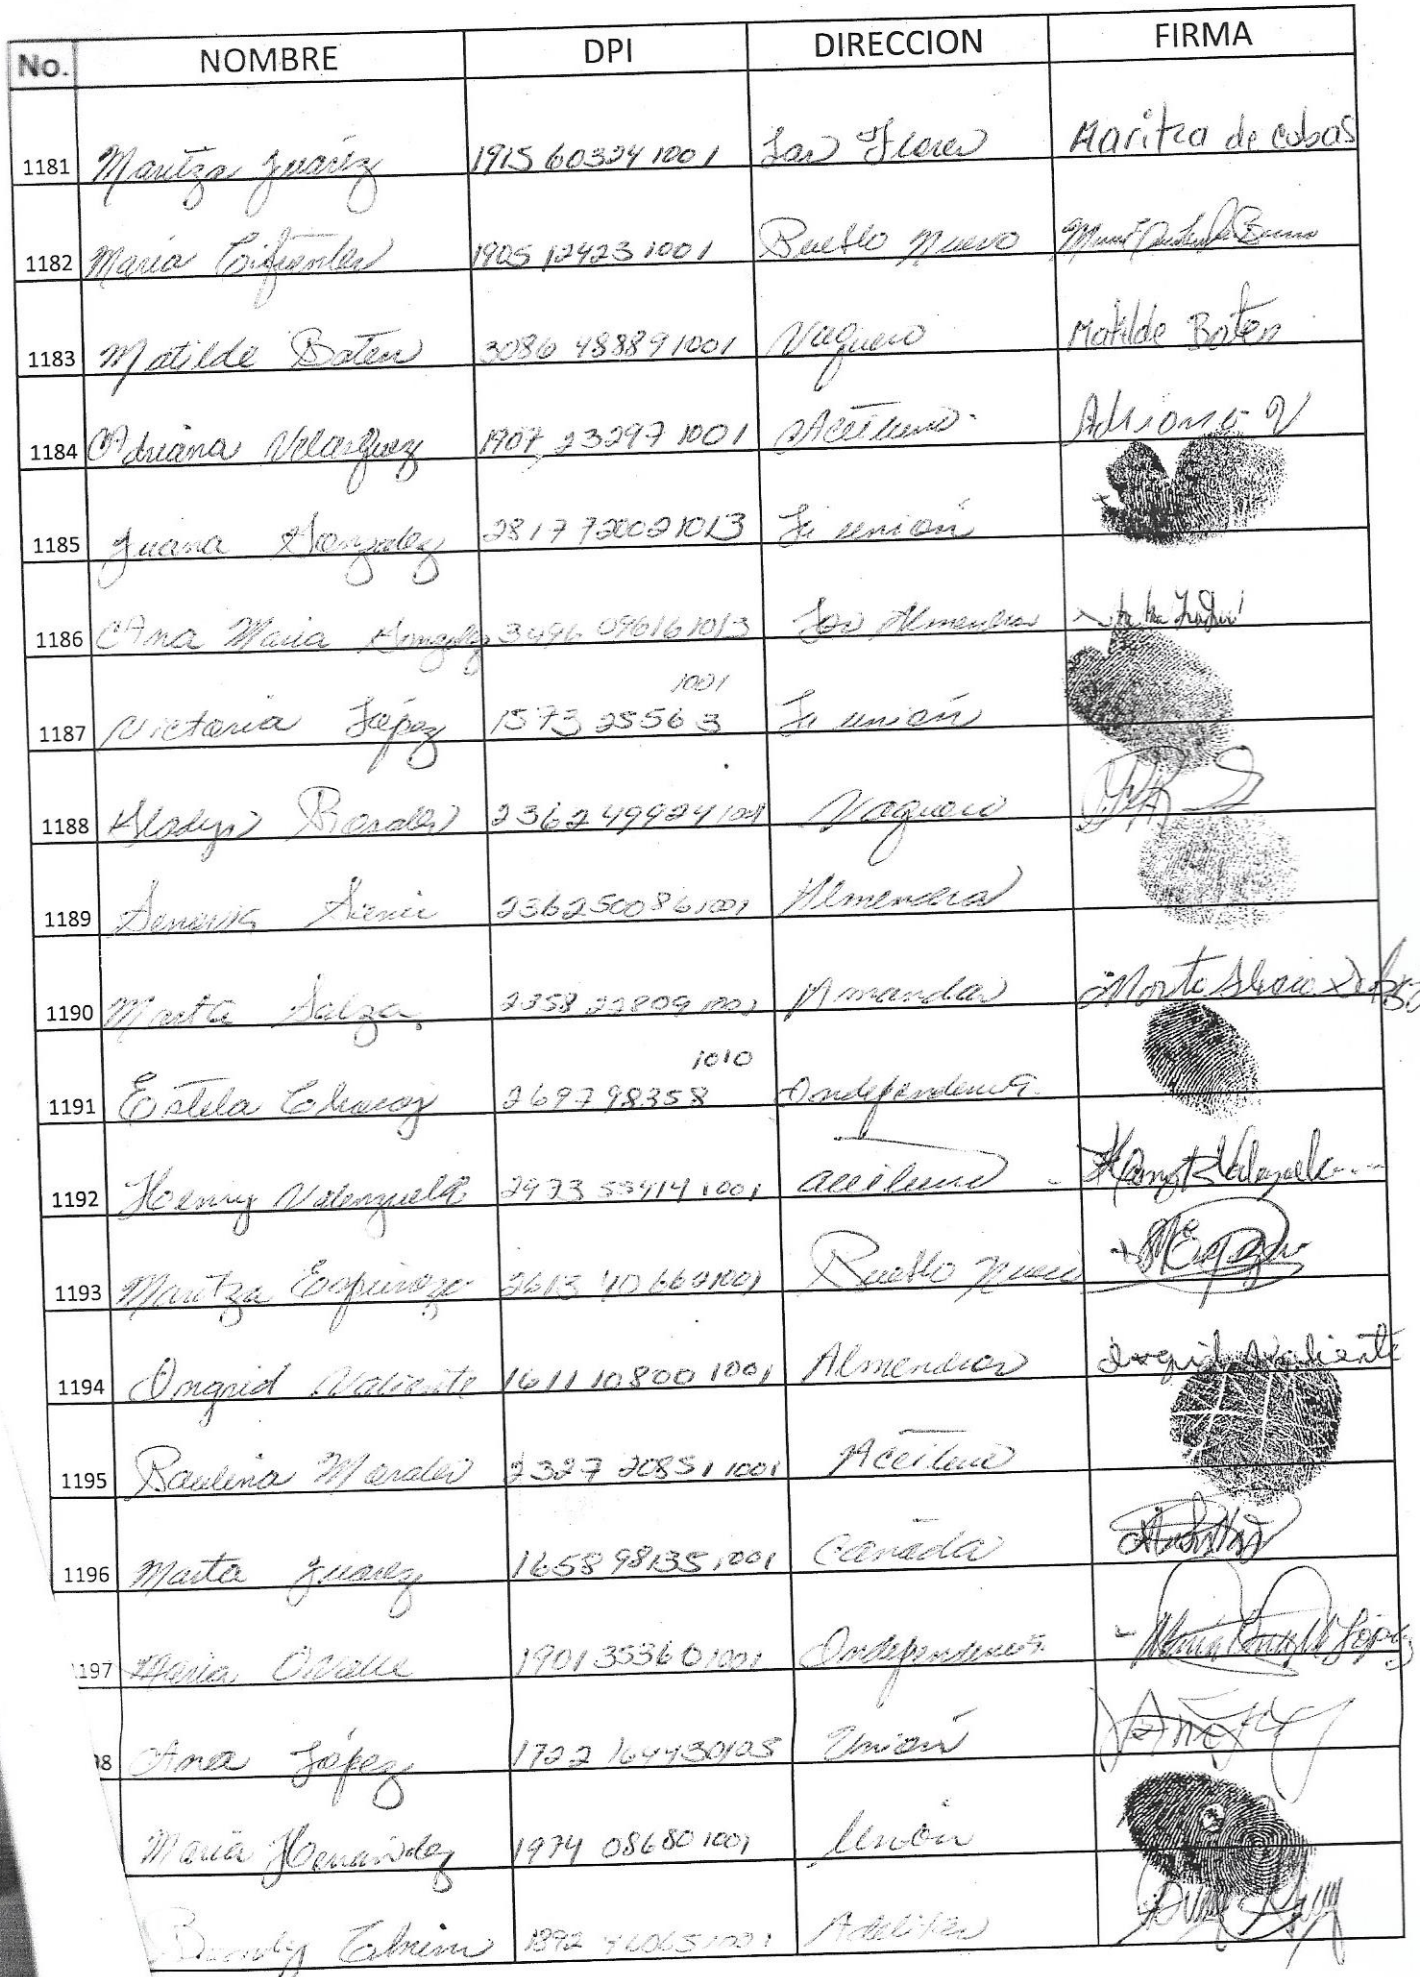 No. NOMBRE DPI DIRECCION FIRMA
1181 Maritza Juaréz 1915 60324 1001 Las Flores Maritza de cobas
1182 Maria Cifuentes 1905 12423 1001 Pueblo Nuevo
1183 Matilde Baten 3086 48889 1001 Vaquero Matilde Baten
1184 Adriana Velasquez 1907 23297 1001 Aceituno Adriana V
1185 Juana Gonzalez 2817 72002 1013 La unión
1186 Ana Maria Gonzalez 3496 09616 1013 Los Almendros
1001
1187 Victoria López 1573 25563 La unión
1188 Gladys Rosales 2362 49924 1001 Vaquero
1189 2362 50086 1001 Almendra
1190 Marta 2358 22809 1001 Amanda
1010
1191 Estela 2697 98358 Independencia
1192 Henry Valenzuela 2973 55414 1001 aceituno
1193 Maritza Espinoza 2613 40662 1001 Pueblo Nuevo
1194 Ingrid Valiente 1611 10800 1001 Almendros Ingrid Valiente
1195 Paulina Morales 2327 20851 1001 Aceituno
1196 Marta Juarez 1658 98135 1001 Canada
197 Maria Ovalle 1901 35360 1001 Independencia
98 Ana López 1722 Unión
Maria Hernández 1974 08680 1001 Unión
1892